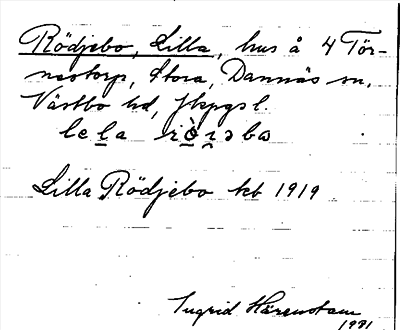 Rödjebo, Lilla, hus å 4 Tör-
nestorp, Stora, Dannäs sn,
Västbo hd, Jkpgs l.
Lilla Rödjebo kb 1919
Ingrid Härenstam
1931